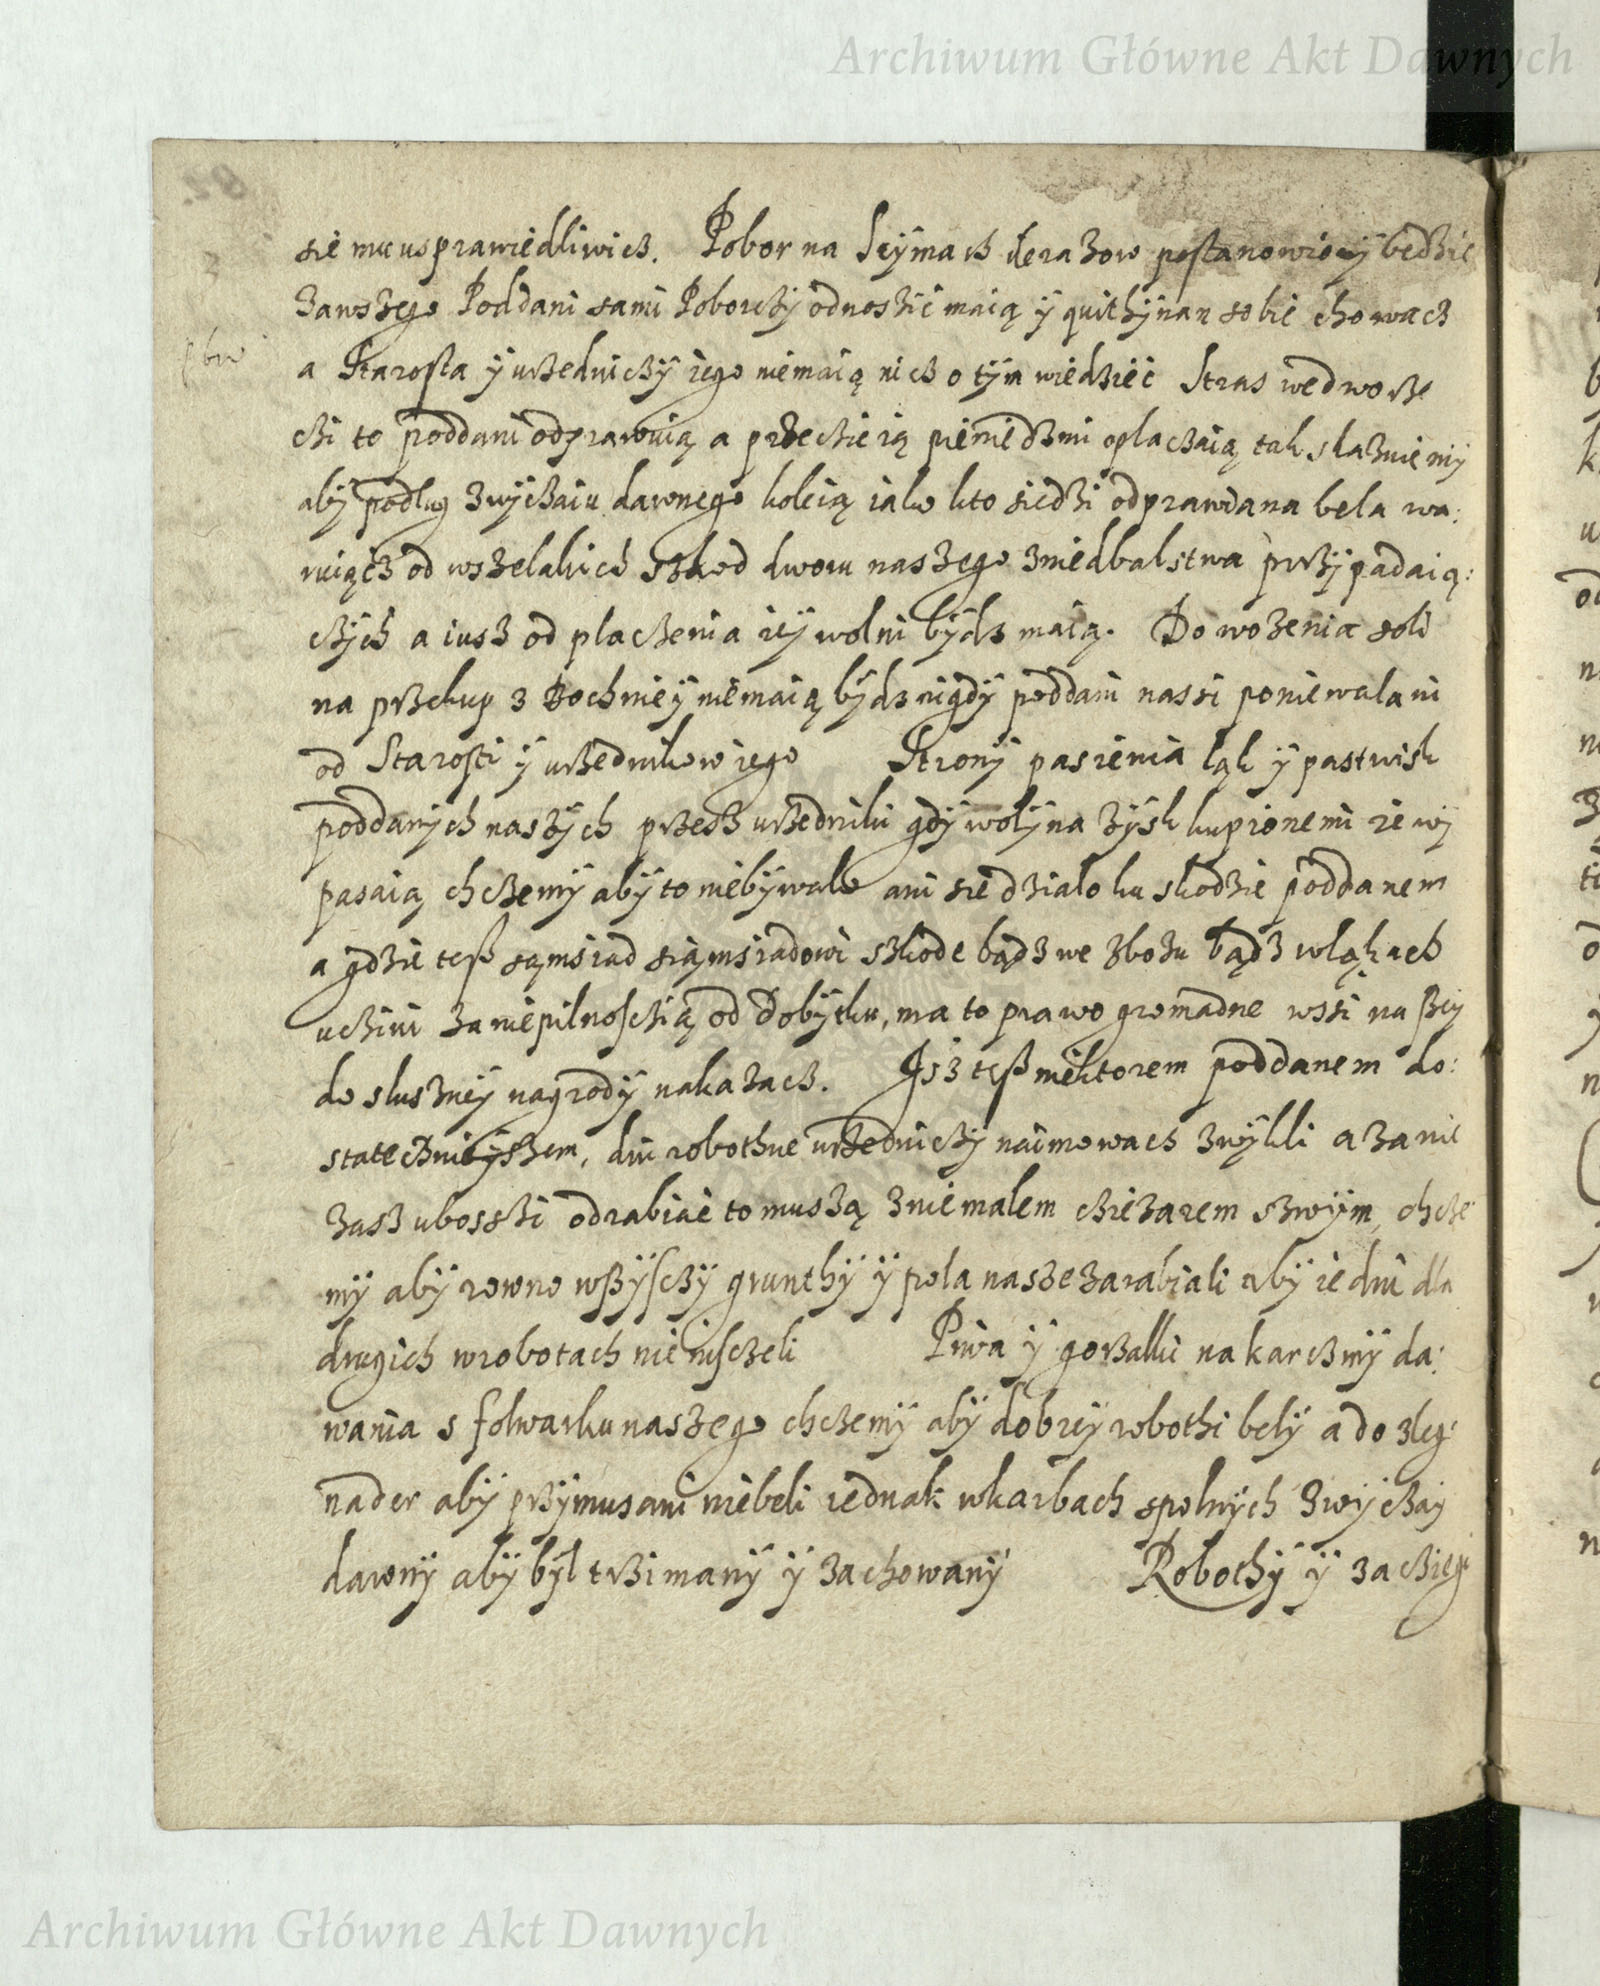 Archiwum Główne Akt Dawnych
sie mu usprawiedliwicz. Pobor na Seÿmach postanowiony bedzie
Poddani sami Poborczÿ odnoszic maią ÿ quithÿ nan sobie chowacz
a Starosta ÿ urzedniczÿ iego niemaią nicz o tÿm wiedziec Stras wedworze
czi to poddani odprawuią a przeczie ią pieniedzmi oplaczaią tak
abÿ podlug zwÿczaiu dawnego koleią iako kto siedzi odprawana bela wa:
ruiącz od wszelakich szkod dworu naszego zniedbalstwa przÿpadaią:
czÿch a iusz od placzenia ieÿ wolni bÿdz maią. Do wozenia soli
na przekup z Bochnieÿ niemaią bÿdz nigdÿ poddani nassi poniewalani
od Starosti ÿ urzednikow iego Stronÿ pasienia ląk ÿ pastwisk
poddanÿch naszÿch przesz urzedniki gdÿ wolÿ na zÿsk kupionemi ie wÿ
pasaią chczemÿ abÿ to niebÿwalo ani sie dzialo ku skodzie poddanem
a gdzie teß sąmsiad siąmsiadowi szkode bądz we zbozu bądz wląkach
uczini za niepilnosczią od Dobÿtku, ma to prawo gromadne wssi naßeÿ
do slusznej nagrodÿ nakazacz. Isz teß niektorem poddanem do:
statecznieÿszem, dni robothne urzedniczÿ naimowacz zwÿkli a za nie
zasz ubosszi odrabiac to muszą zniemalem cziezarem szwÿm, chcze
mÿ abÿ rowno wßÿsczÿ grunthÿ ÿ pola nasze zarabiali abÿ iedni dla
drugich wrobotach nie nisczeli Piwa ÿ gorzalki na karczmÿ da:
wania s folwarku naszego chczemÿ abÿ dobreÿ robothi belÿ a do zleg
nader abÿ przÿmusani niebeli iednak wkarbach spolnÿch zwÿczaÿ
dawnÿ abÿ bÿl trzimanÿ ÿ zachowanÿ Robothÿ ÿ zaczieg
Archiwum Główne Akt Dawnych